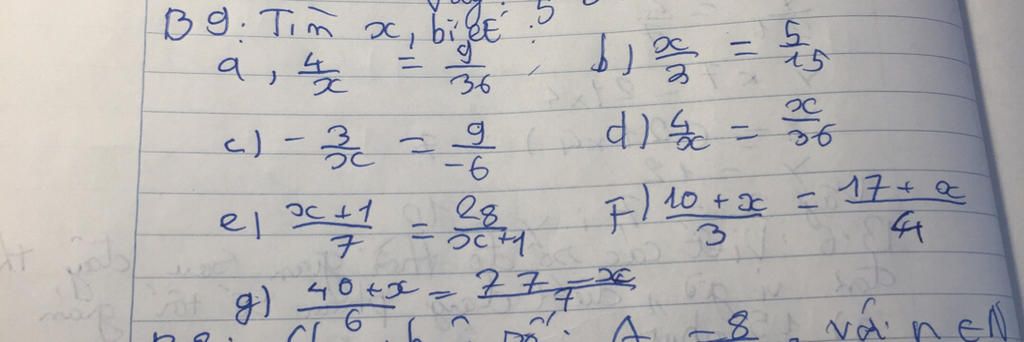 B9: Tìm x, biết:
a, 4/x = 9/36, b) x/3 = 5/15
c) - 3/x = 9/-6 d) 4/x = x/36
e) x+1/7 = 28/x+1 F) 10+x/3 = 17+x/4
g) 40+x/6 = 77-x/7
A = 8 với n ∈ N